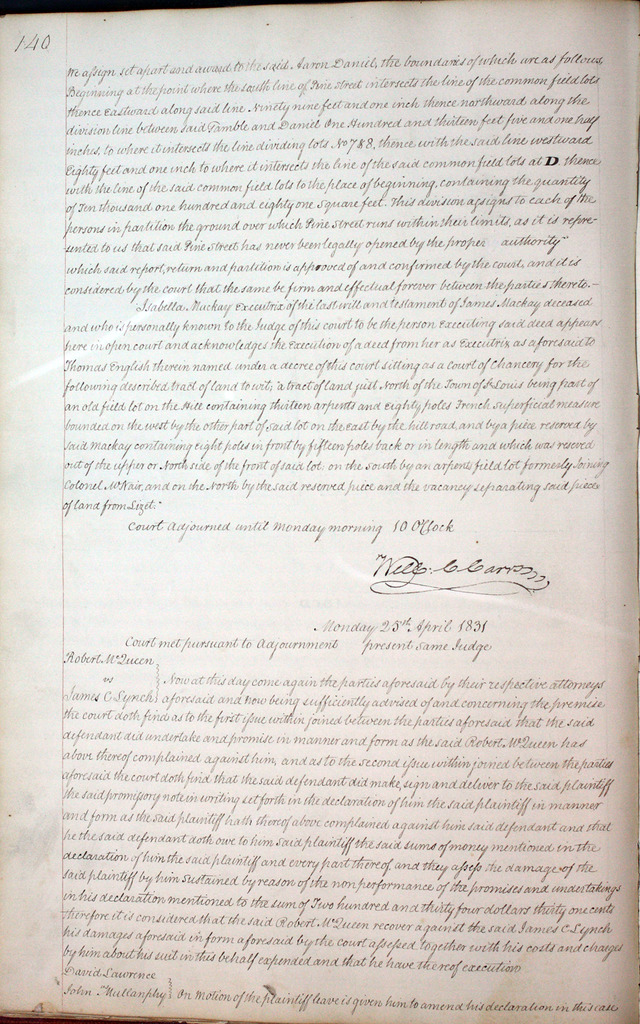 140
We assign set apart and award to the said Aaron Daniel, the boundaries of which are as follows,
Beginning at the point where the south line of Pine Street intersects the line of the common field lots
thence Eastward along said line Ninety nine feet and one inch thence northward along the
division line between said Tamble and Daniel One Hundred and thirteen feet five and one half
inches, to where it intersects the line dividing lots No 7 & 8, thence with the said line westward
Eighty feet and one inch to where it intersects the line of the said common field lots at D thence
with the line of the said common field lots to the place of beginning, containing the quantity
of Ten thousand one hundred and eighty one Square feet. This division assigns to each of the
persons in partition the ground over which Pine Street runs within their limits, as it is repre-
sented to us that said Pine Street has never been legally opened by the proper authority"
which said report, return and partition is approved of and confirmed by the court, and it is
considered by the court that the same be firm and effectual forever between the parties thereto.-
Isabella Mackay Executrix of the last will and testament of James Mackay deceased
and who is personally known to the Judge of this court to be the person Executing said deed appears
here in open court and acknowledges the Execution of a deed from her as Executrix as aforesaid to
Thomas English therein named under a decree of this court sitting as a Court of Chancery for the
following described tract of land to wit, "a tract of land just North of the Town of St Louis being part of
an old field lot on the Hill containing thirteen arpents and Eighty poles French Superficial measure
bounded on the west by the other part of said lot on the east by the hill road, and by a piece reserved by
said Mackay containing eight poles in front by fifteen poles back or in length and which was reserved
out of the upper or North side of the front of said lot, on the South by an arpents field lot formerly Joining
Colonel McNair, and on the North by the said reserved piece and the vacancy separating said piece
of land from Lizet."
Court adjourned until Monday morning 10 OClock
Will: C. Carr
Monday 25th April 1831
Court met pursuant to Adjournment present same Judge
Robert McQueen
vs
Now at this day come again the parties aforesaid by their respective attorneys
James C Lynch aforesaid and now being sufficiently advised of and concerning the premise
the court doth find as to the first issue within joined between the parties aforesaid that the said
defendant did undertake and promise in manner and form as the said Robert McQueen has
above thereof complained against him, and as to the second issue within joined between the parties
aforesaid the court doth find that the said defendant did make, sign and deliver to the said plaintiff
the said promissory note in writing set forth in the declaration of him the said plaintiff in manner
and form as the said plaintiff hath thereof above complained against him said defendant and that
he the said defendant doth owe to him said plaintiff the said sums of money mentioned in the
declaration of him the said plaintiff and every part thereof, and they assess the damage of the
said plaintiff by him Sustained by reason of the non performance of the promises and undertakings
in his declaration mentioned to the sum of Two hundred and thirty four dollars thirty one cents
therefore it is considered that the said Robert McQueen recover against the said James C Lynch
his damages aforesaid in form aforesaid by the court assessed together with his costs and charges
by him about his suit in this behalf expended and that he have thereof execution
David Lawrence
John Mullanphy On motion of the plaintiff leave is given him to amend his declaration in this case